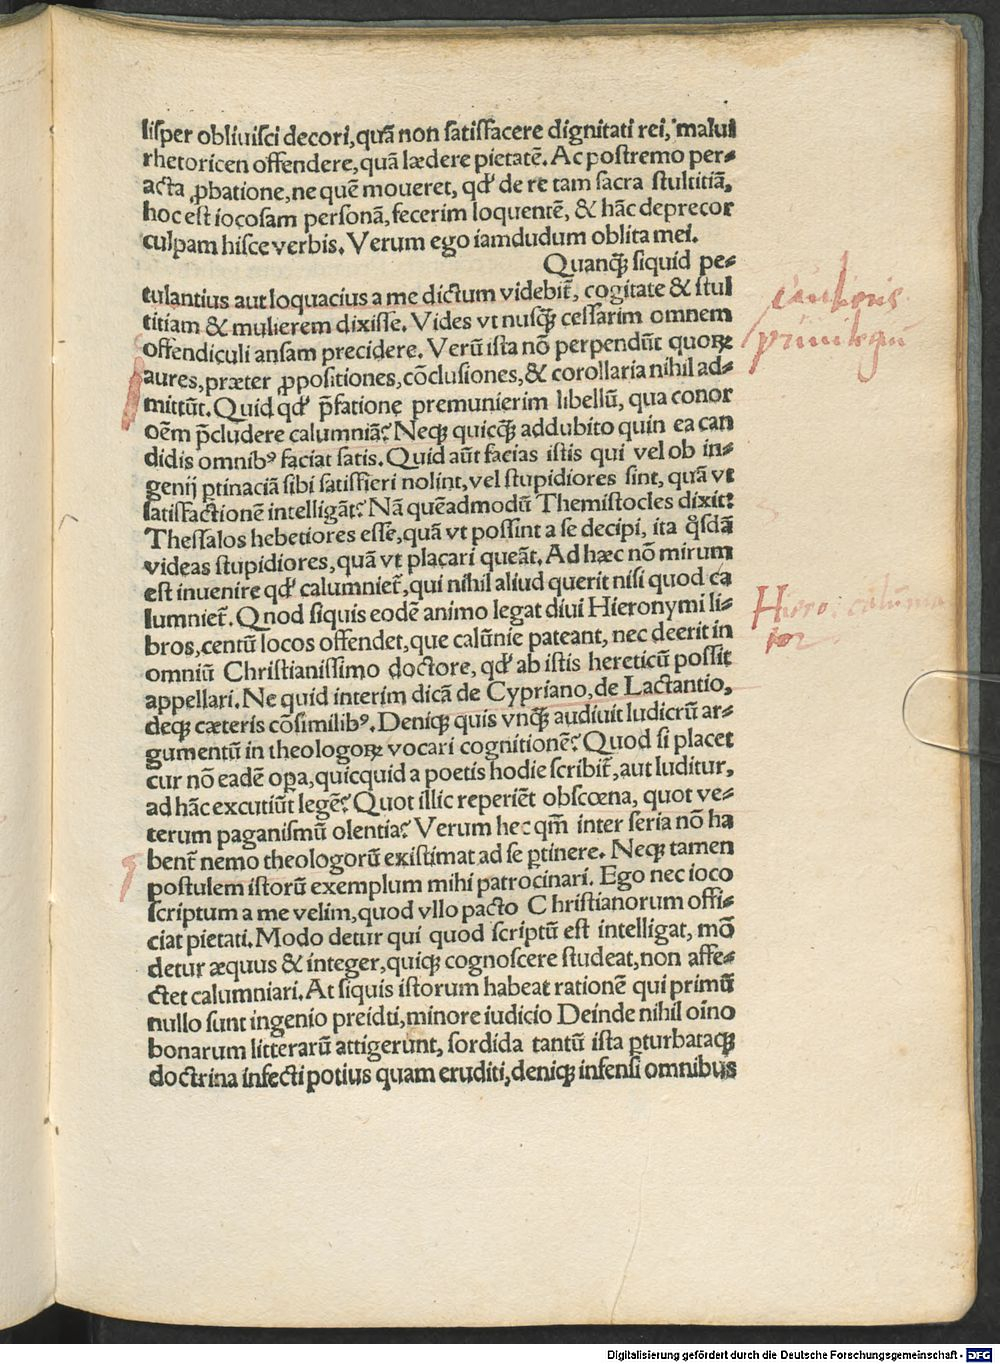 lisper obliuisci decori, quā non satisfacere dignitati rei, malui
rhetoricen offendere, quā lædere pietatē. Ac postremo per⸗
acta ꝓbatione, ne quē moueret, qd' de re tam sacra stultitiā,
hoc est iocosam personā, fecerim loquentē, & hāc deprecor
culpam hisce verbis. Verum ego iamdudum oblita mei.
Quanq̄ꝫ siquid pe⸗
tulantius aut loquacius a me dictum videbit̄, cogitate & stul
titiam & mulierem dixisse. Vides vt nusq̄ꝫ cessarim omnem
offendiculi ansam precidere. Verū ista nō perpendūt quoꝝ
aures, præter ꝓpositiones, cōclusiones, & corollaria nihil ad⸗
mittūt. Quid qd' p̄fatione premunierim libellū, qua conor
oēm p̄cludere calumniā? Neqꝫ quicq̄ꝫ addubito quin ea can
didis omnibꝰ faciat satis. Quid aūt facias istis qui vel ob in⸗
genij ꝑtinaciā sibi satisfieri nolint, vel stupidiores sint, quā vt
satisfactionē intelligāt? Nā quēadmodū Themistocles dixit:
Thessalos hebetiores esse, quā vt possint a se decipi, ita q̊sdā
videas stupidiores, quā vt placari queāt. Ad hæc nō mirum
est inuenire qd' calumniet̄, qui nihil aliud querit nisi quod ca
lumniet̄. Qnod siquis eodē animo legat diui Hieronymi li⸗
bros, centū locos offendet, que calūnie pateant, nec deerit in
omniū Christianissimo doctore, qd' ab istis hereticū possit
appellari. Ne quid interim dicā de Cypriano, de Lactantio,
deqꝫ cæteris cōsimilibꝰ. Deniqꝫ quis vnq̄ꝫ audiuit ludicrū ar⸗
gumentū in theologoꝝ vocari cognitionē? Quod si placet
cur nō eadē oꝑa, quicquid a poetis hodie scribit̄, aut luditur,
ad hāc excutiūt legē? Quot illic reperiēt obscœna, quot ve⸗
terum paganismū olentia? Verum hec qm̄ inter seria nō ha
bent nemo theologorū existimat ad se ꝑtinere. Neqꝫ tamen
postulem istorū exemplum mihi patrocinari. Ego nec ioco
scriptum a me velim, quod vllo pacto Christianorum offi⸗
ciat pietati. Modo detur qui quod scriptū est intelligat, mō
detur æquus & integer, quiqꝫ cognoscere studeat, non affe⸗
ctet calumniari. At siquis istorum habeat rationē qui primū
nullo sunt ingenio preidti, minore iudicio Deinde nihil oīno
bonarum litterarū attigerunt, sordida tantū ista ꝑturbataqꝫ
doctrina infecti potius quam eruditi, deniqꝫ infensi omnibus
priuilegiū
Hiero: calūnia
tor
Digitalisierung gefördert durch die Deutsche Forschungsgemeinschaft - DFG